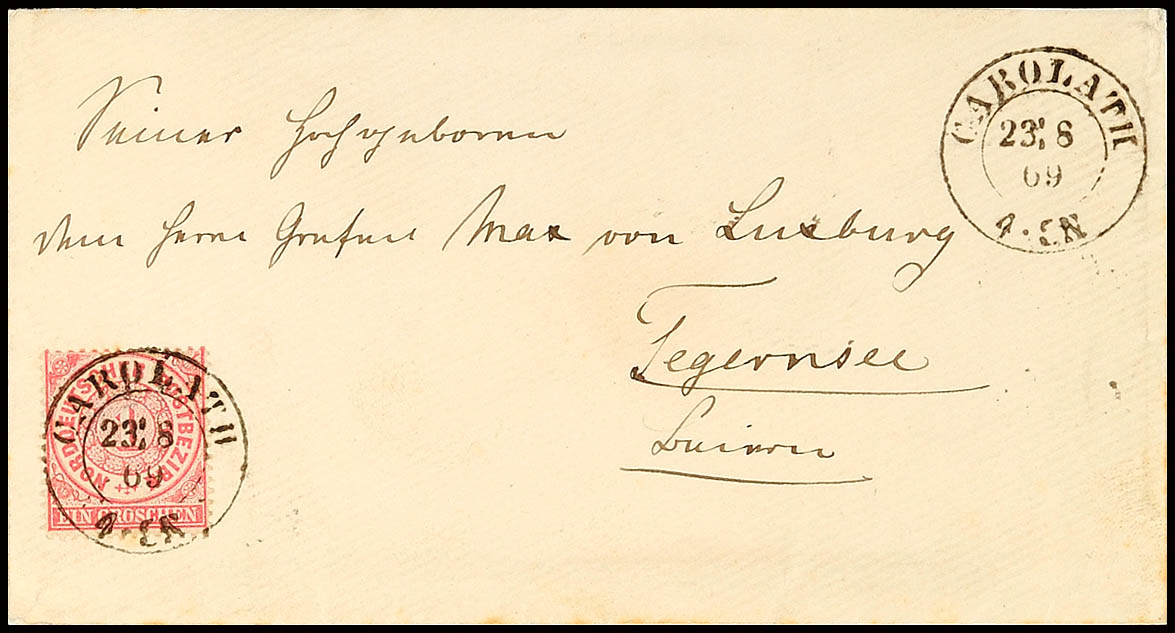 CAROLATH
23 8
69
Seiner Hochgeboren
dem Herrn Grafen Max von Luxburg
Tegernsee
Baiern
NORDDEUTSCHER POSTBEZIRK
1
EIN GROSCHEN
CAROLATH
23 8
69